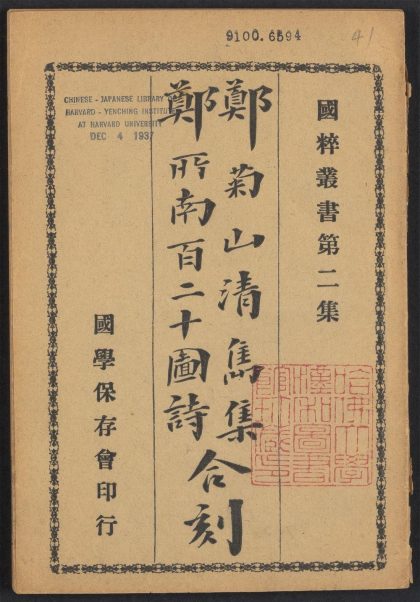 9100.6594
41
CHINESE - JAPANESE LIBRARY
HARVARD - YENCHING INSTITUTE
AT HARVARD UNIVERSITY
DEC 4 1937
國粹叢書第二集
鄭菊山清雋集
鄭所南百二十圖詩
合刻
國學保存會印行
哈佛大學
漢和圖書
館珍藏印